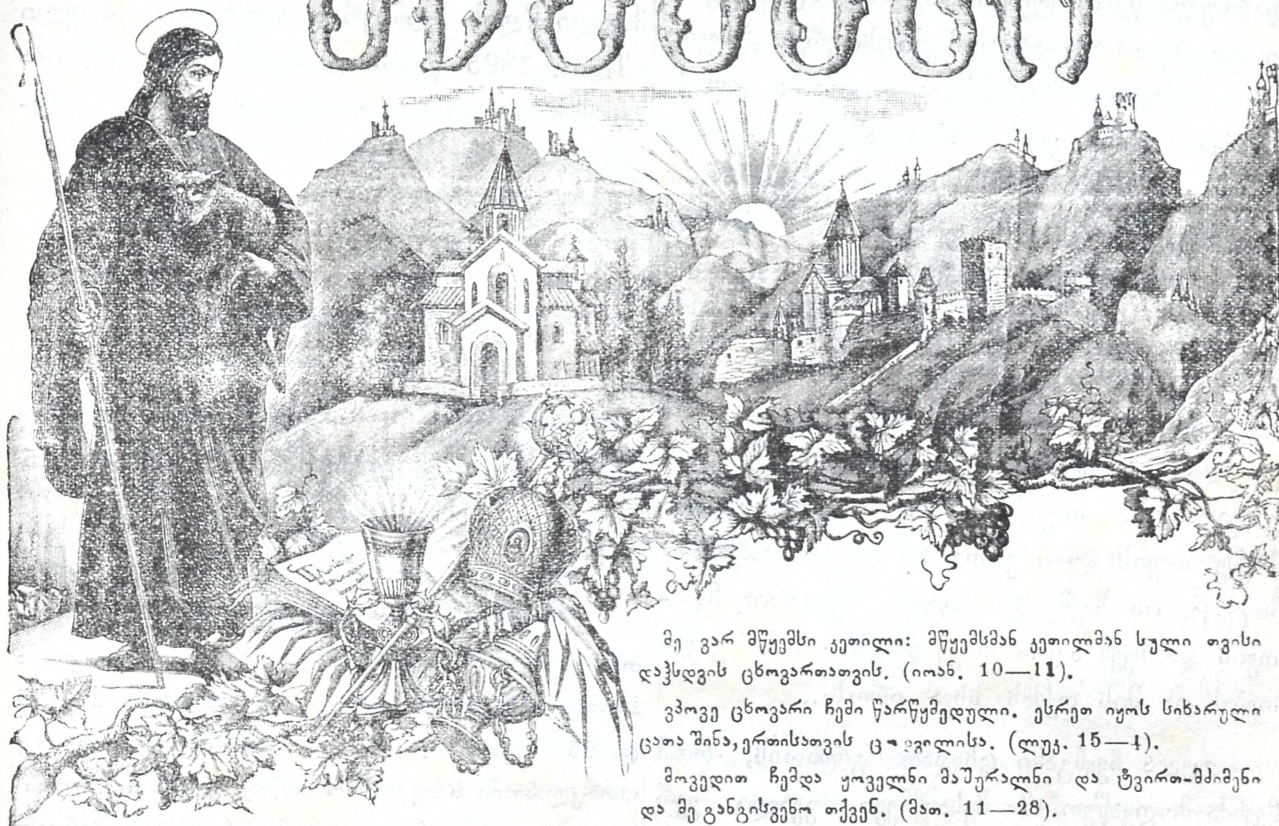 მე ვარ მწყემსი კეთილი: მწყემსმან კეთილმან სული თვისი
დაჰსდვის ცხოვართათვის. (იოან. 10—11).
ვპოვე ცხოვარი ჩემი წარწყმედული. ესრეთ იყოს სიხარული
ცათა შინა, ერთისათვის (ლუკ. 15—4).
მოვედით ჩემდა ყოველნი მაშურალნი და ტვირთ-მძიმენი
და მე განგისვენო თქვენ. (მათ. 11—28).